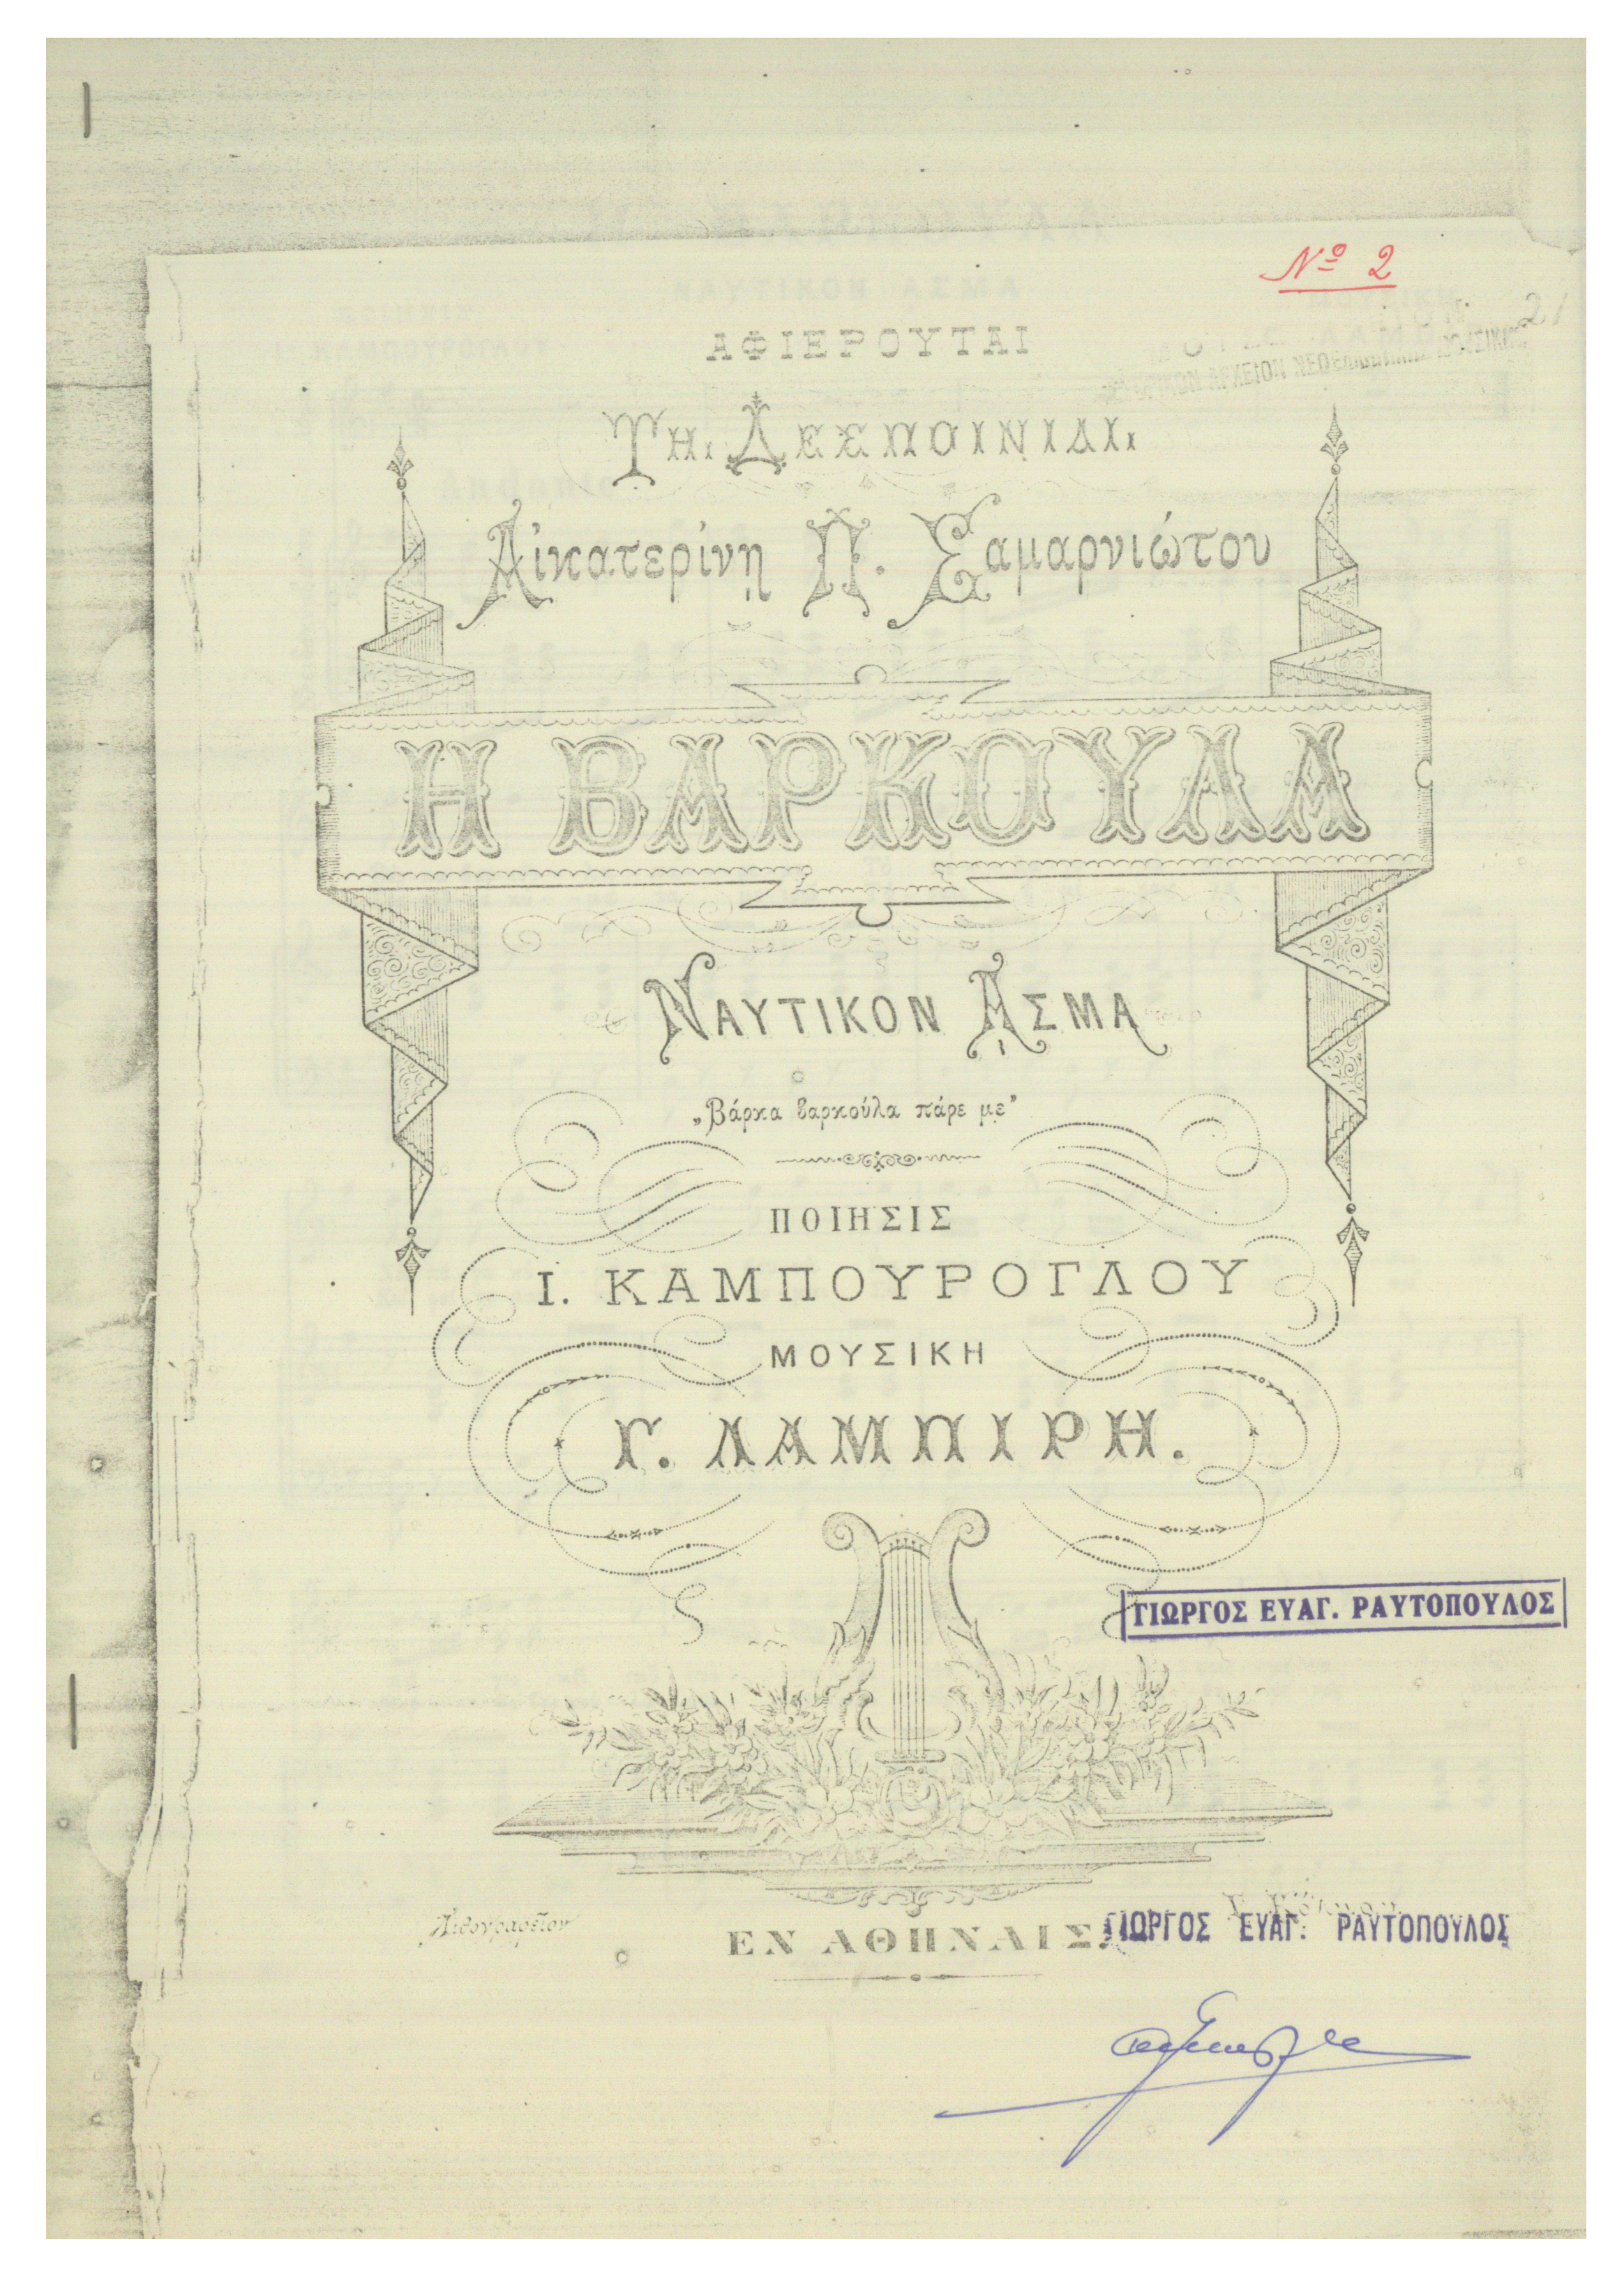 Nº 2
21
ΑΦΙΕΡΟΥΤΑΙ
ΤΗι ΔΕΣΠΟΙΝΙΔΙι
Αἰκατερίνῃ Π. Σαμαρνιώτου
Η ΒΑΡΚΟΥΛΑ
ΝΑΥΤΙΚΟΝ ᾼΣΜΑ
„Βάρκα βαρκούλα πάρε με"
ΠΟΙΗΣΙΣ
Ι. ΚΑΜΠΟΥΡΟΓΛΟΥ
ΜΟΥΣΙΚΗ
Γ. ΛΑΜΠΙΡΗ.
ΓΙΩΡΓΟΣ ΕΥΑΓ. ΡΑΥΤΟΠΟΥΛΟΣ
Λιθογραφεῖον
ΕΝ ΑΘΗΝΑΙΣ.
ΓΙΩΡΓΟΣ ΕΥΑΓ. ΡΑΥΤΟΠΟΥΛΟΣ